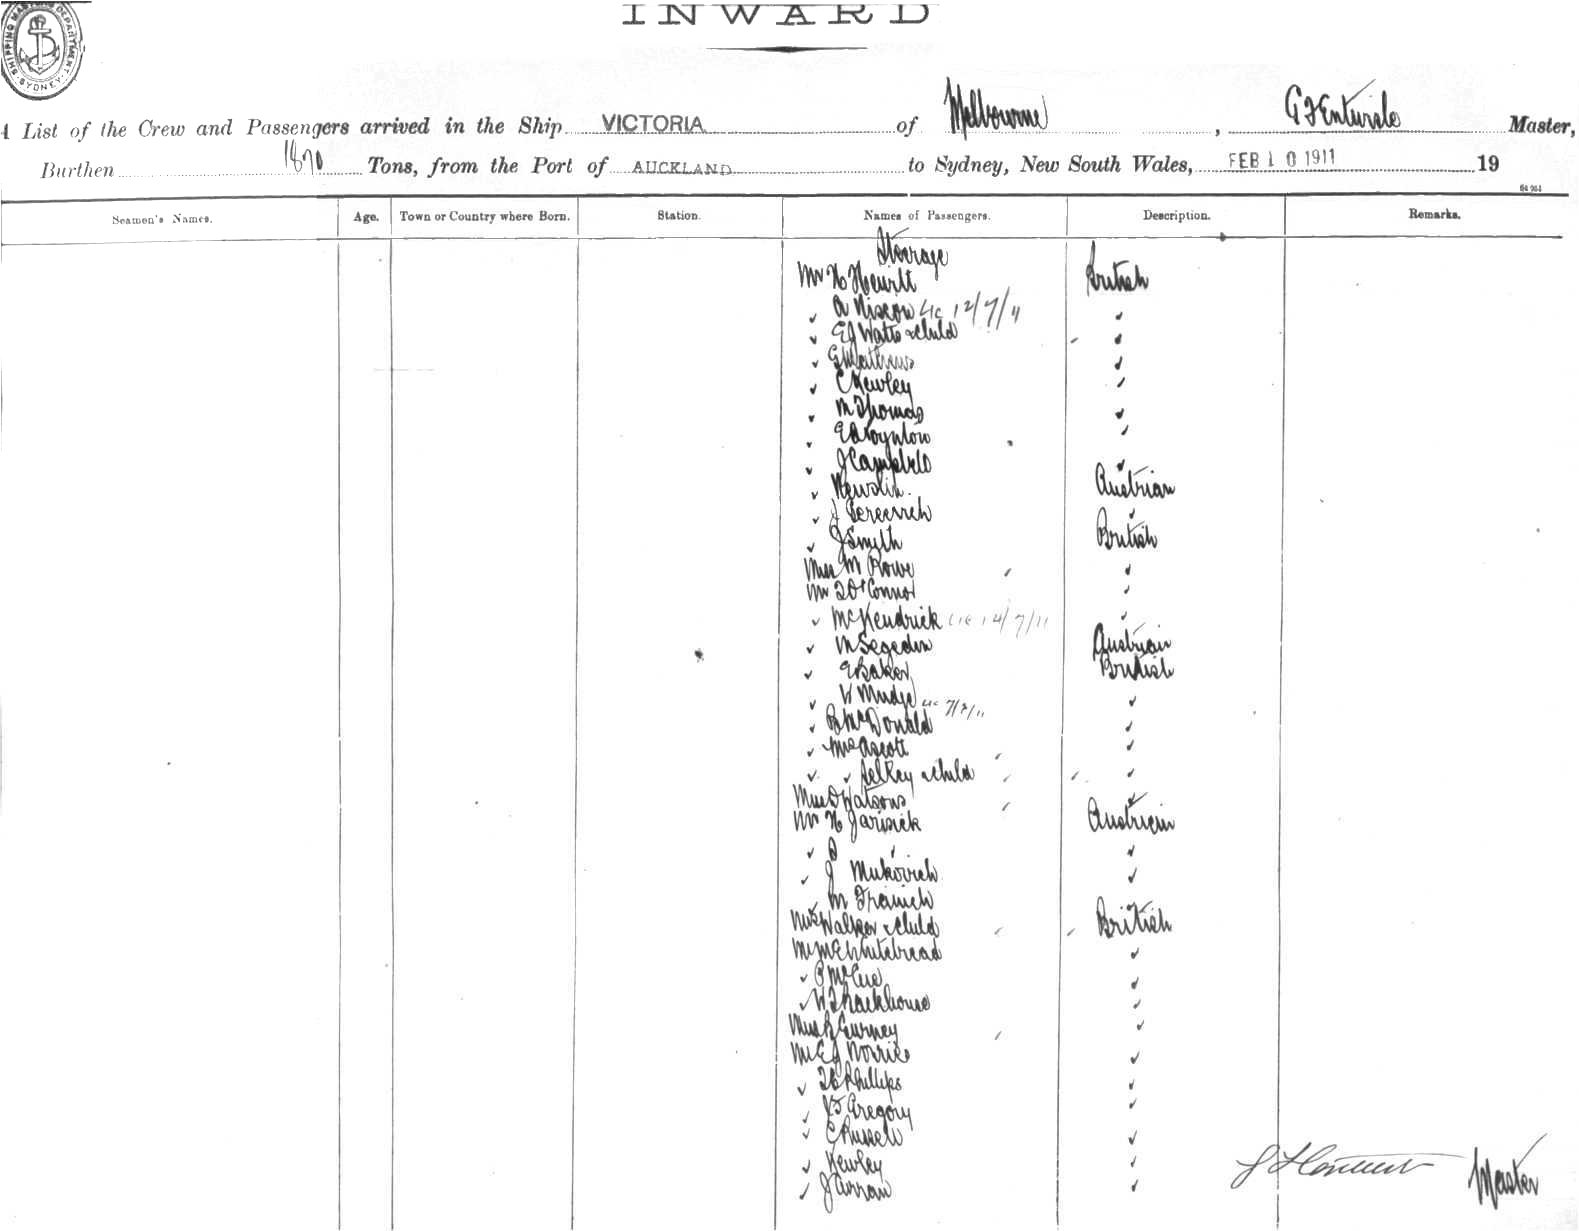 SHIPPING MASTERS DEPARTMENT. SYDNEY.
INWARD
A List of the Crew and Passengers arrived in the Ship VICTORIA of Melbourne, Master,
Burthen 1870 Tons, from the Port of AUCKLAND to Sydney, New South Wales, FEB 10 1911 19
Seamen's Names. Age. Town or Country where Born. Station. Names of Passengers. Description. Remarks.
Steerage
Mr H Hewitt British
A 12/7/11
EJ Watts & Child
G Mathews
C Kewley
M Thomas
E A Boynton
J Campbell
Austrian
J
J Smith British
Miss M Rowe
Mr D O'Connor
McKendrick 14/7/11
M Segedin Austrian
E Baker British
W Mudge
B McDonald
Mrs Ascott
Selkey & Child
Miss D Watsons
Mr N Jarisick Austrian
J Mukovich
M Franich
Mrs Walker & Child British
Mr M E Whitebread
P McCue
W Thackhouse
Miss B Gurney
Mr E J Norris
Phillips
Gregory
C Russell
Kewley
J Curran
Master